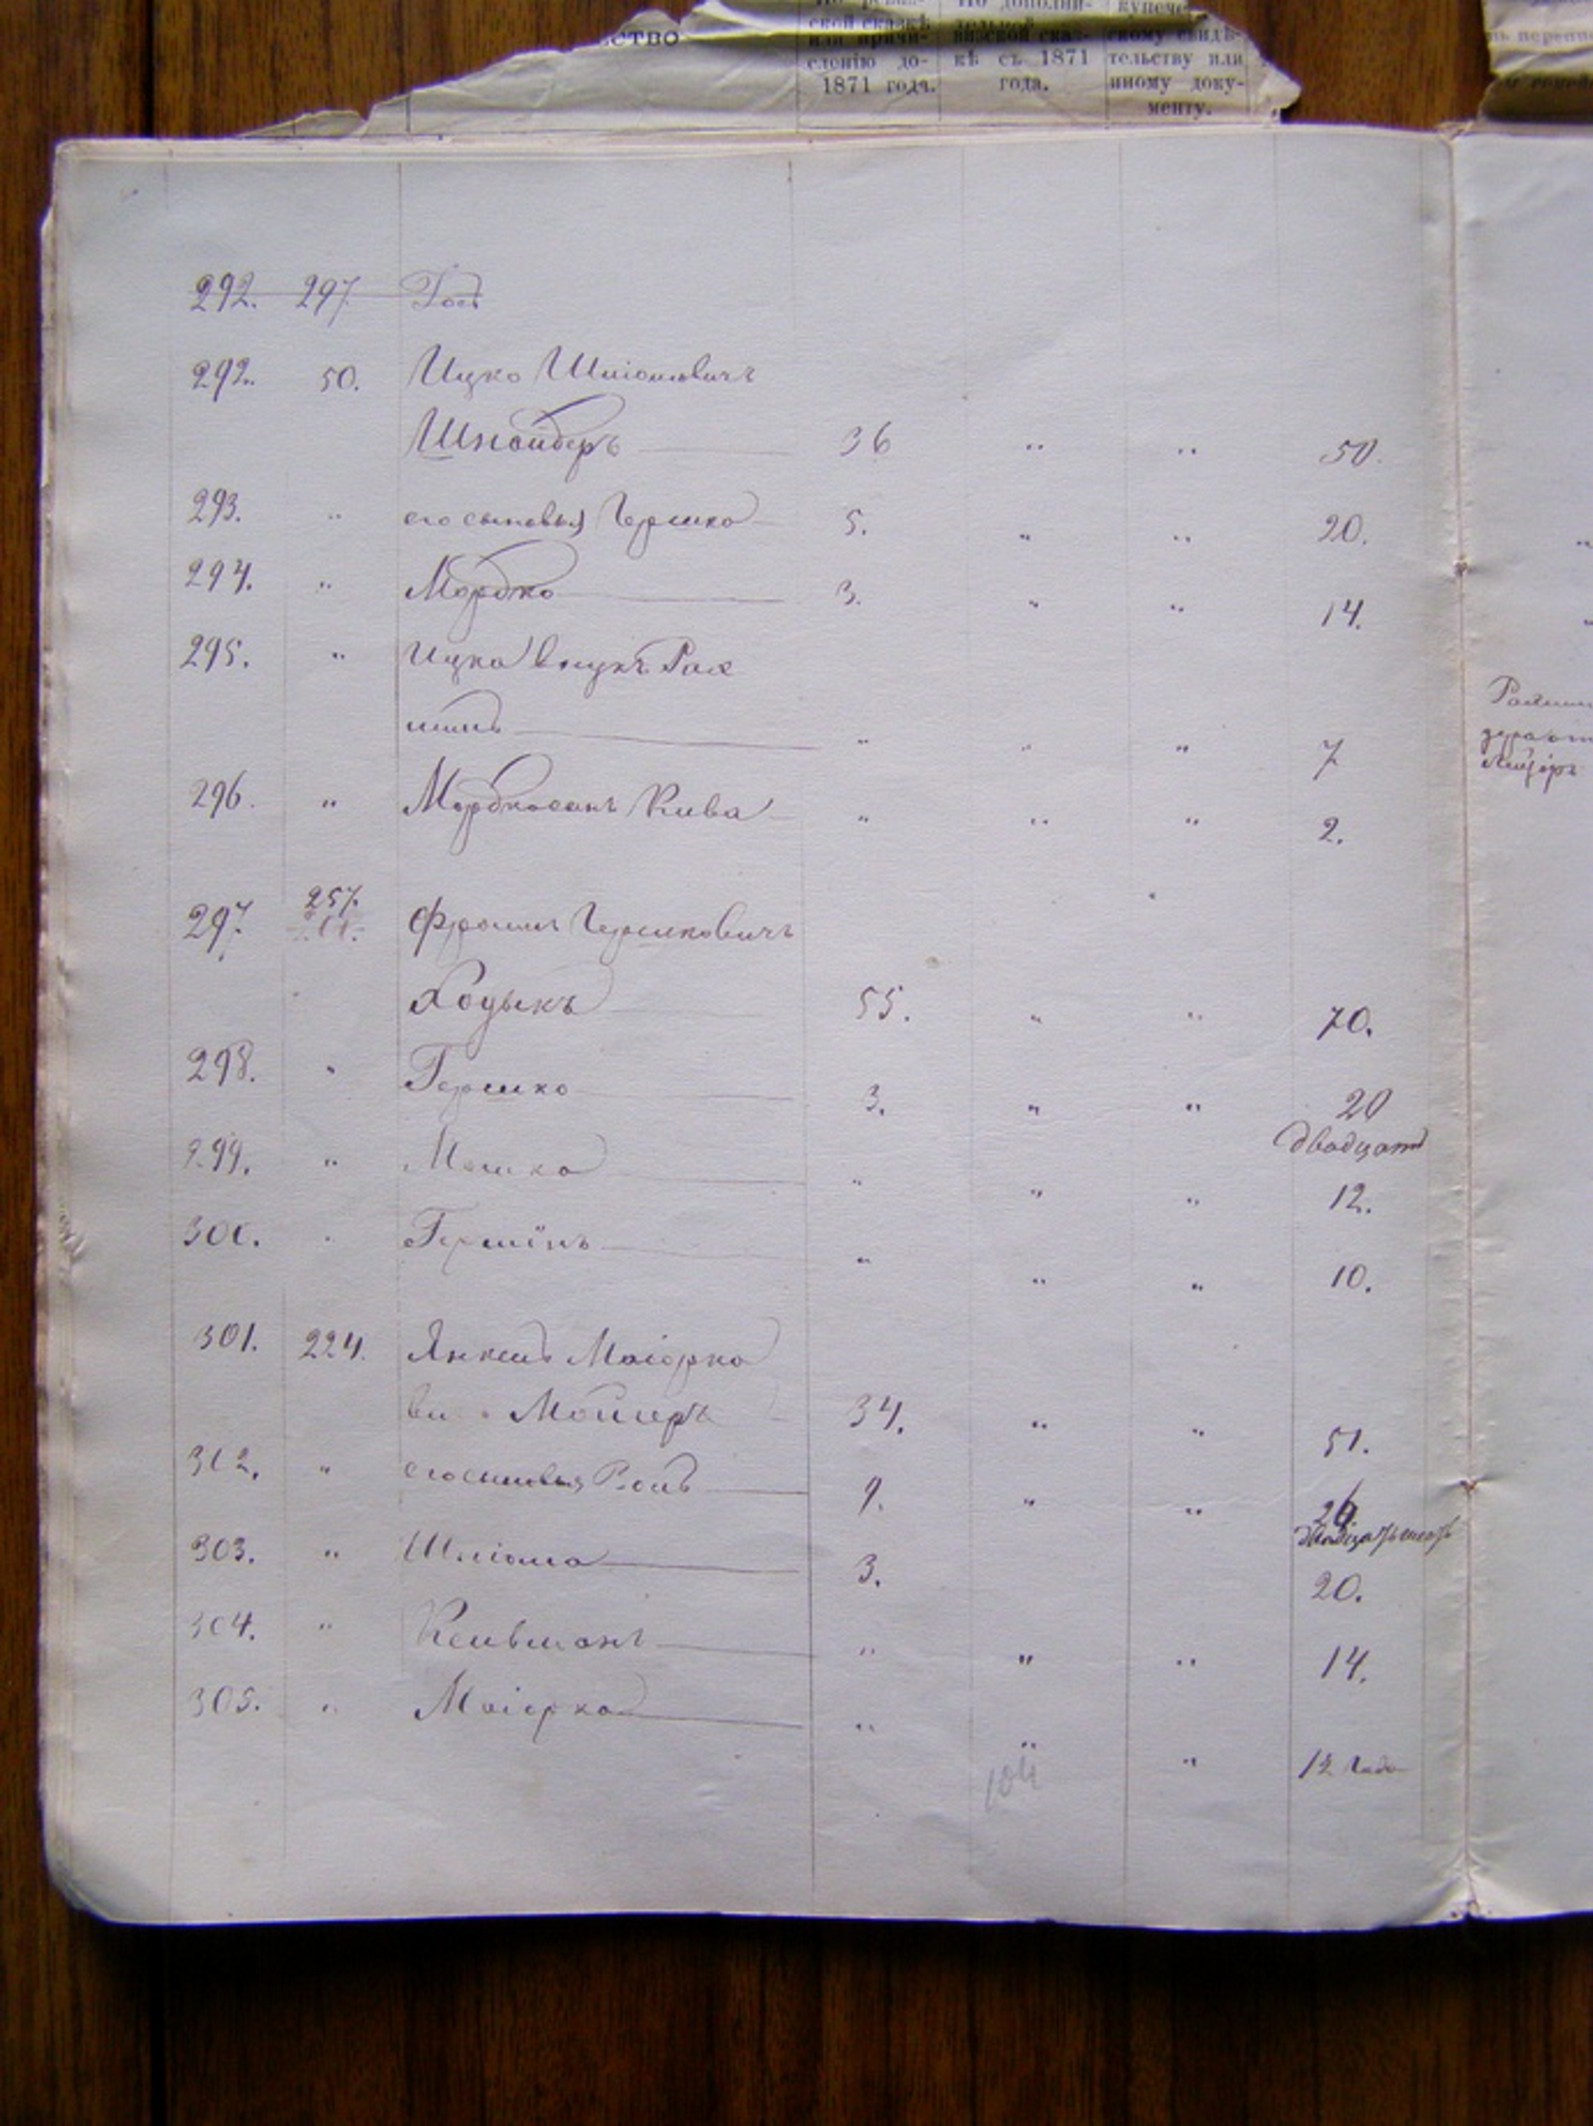 ство
ской сказкѣ
или причи-
сленію до-
1871 года.
По дополни-
тельной
кѣ съ 1871
года.
купече
скому свидѣ-
тельству или
иному доку-
менту.
292. 297
292. 50. Ицко Шлiомовичъ
Шнайдеръ 36 " " 50.
293. " его сыновья Гершко 5. " " 20.
294. " Мордко 3. " " 14.
295. " Ицка внукъ Рах
миль " " " 7
296. " Мордко сынъ Кива " " " 2.
297. 257. Фроимъ Гершковичъ
Ходыкъ 55. " " 70.
298. " Гершко 3. " " 20
двадцать
299. " Мошко " " " 12.
300. " " " " 10.
301. 224. Янкель Маiорко
ви Мошеръ 34. " " 51.
302. " его сыновья 9. " " 26
двадцать шесть
303. " Шлiома 3. 20.
304. " Кельманъ " " " 14.
305. " Маiорка " " " 12 года
104